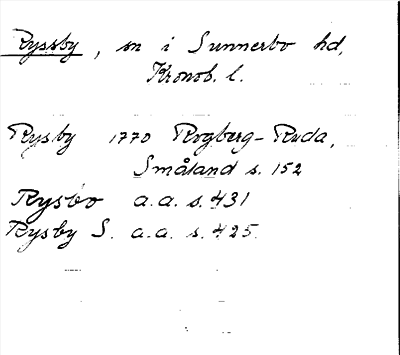 Ryssby, sn i Sunnerbo hd,
Kronob. l.
Rysby 1770 Rogberg-Ruda,
Småland s. 152
Rysbo a.a. s. 431
Rysby S. a.a. s. 425.